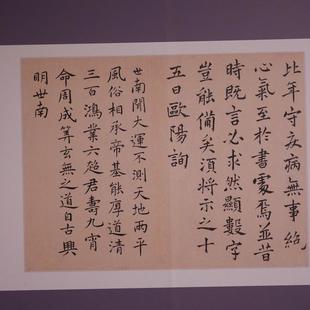 比年守疾病無事絕
心氣至於書處焉並昔
時既言必求然顯數字
豈能備矣須將示之十
五日歐陽詢
世南聞大運不測天地兩平
風俗相承帝基能厚道清
三百鴻業六超君壽九霄
命周成算玄無之道自古興
明世南